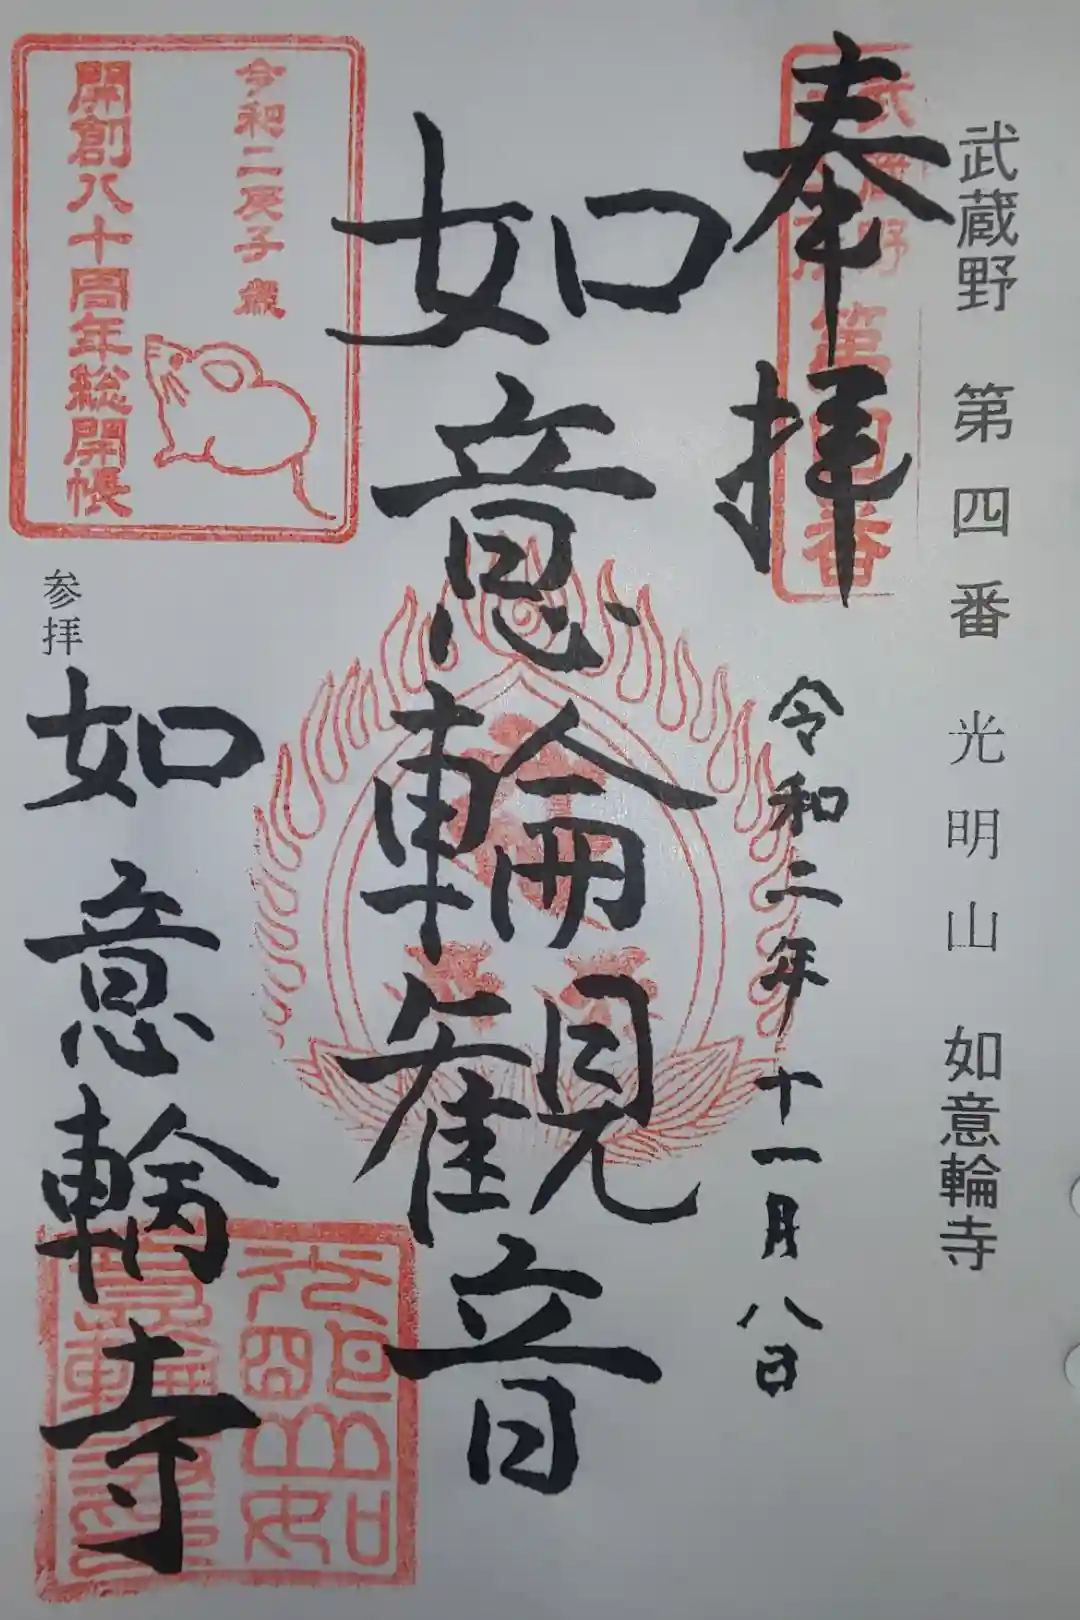 武蔵野 第四番 光明山 如意輪寺
奉拝
武蔵野
第四番
令和二年十一月八日
如意輪観音
令和二庚子歳
開創八十周年総開帳
参拝
如意輪寺